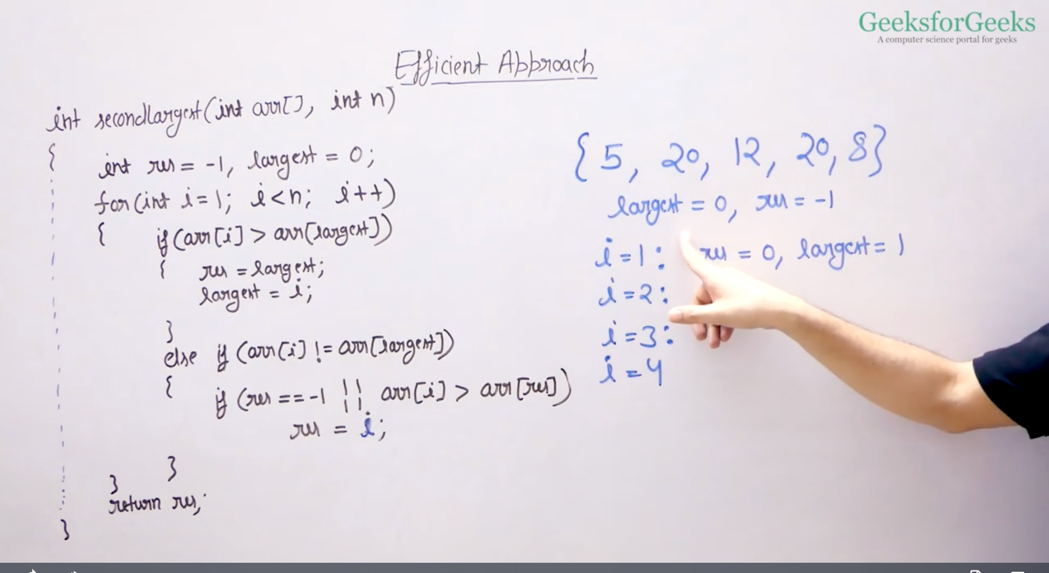 GeeksforGeeks
A computer science portal for geeks
Efficient Approach
int secondLargest(int arr[], int n)
{
int res = -1, largest = 0;
for(int i=1; i<n; i++)
{ if(arr[i] > arr[largest])
{ res = largest;
largest = i;
}
else if (arr[i] != arr[largest])
{ if (res == -1 || arr[i] > arr[res])
res = i;
}
}
return res;
}
{5, 20, 12, 20, 8}
largest = 0, res = -1
i=1: res = 0, largest = 1
i=2:
i=3:
i=4